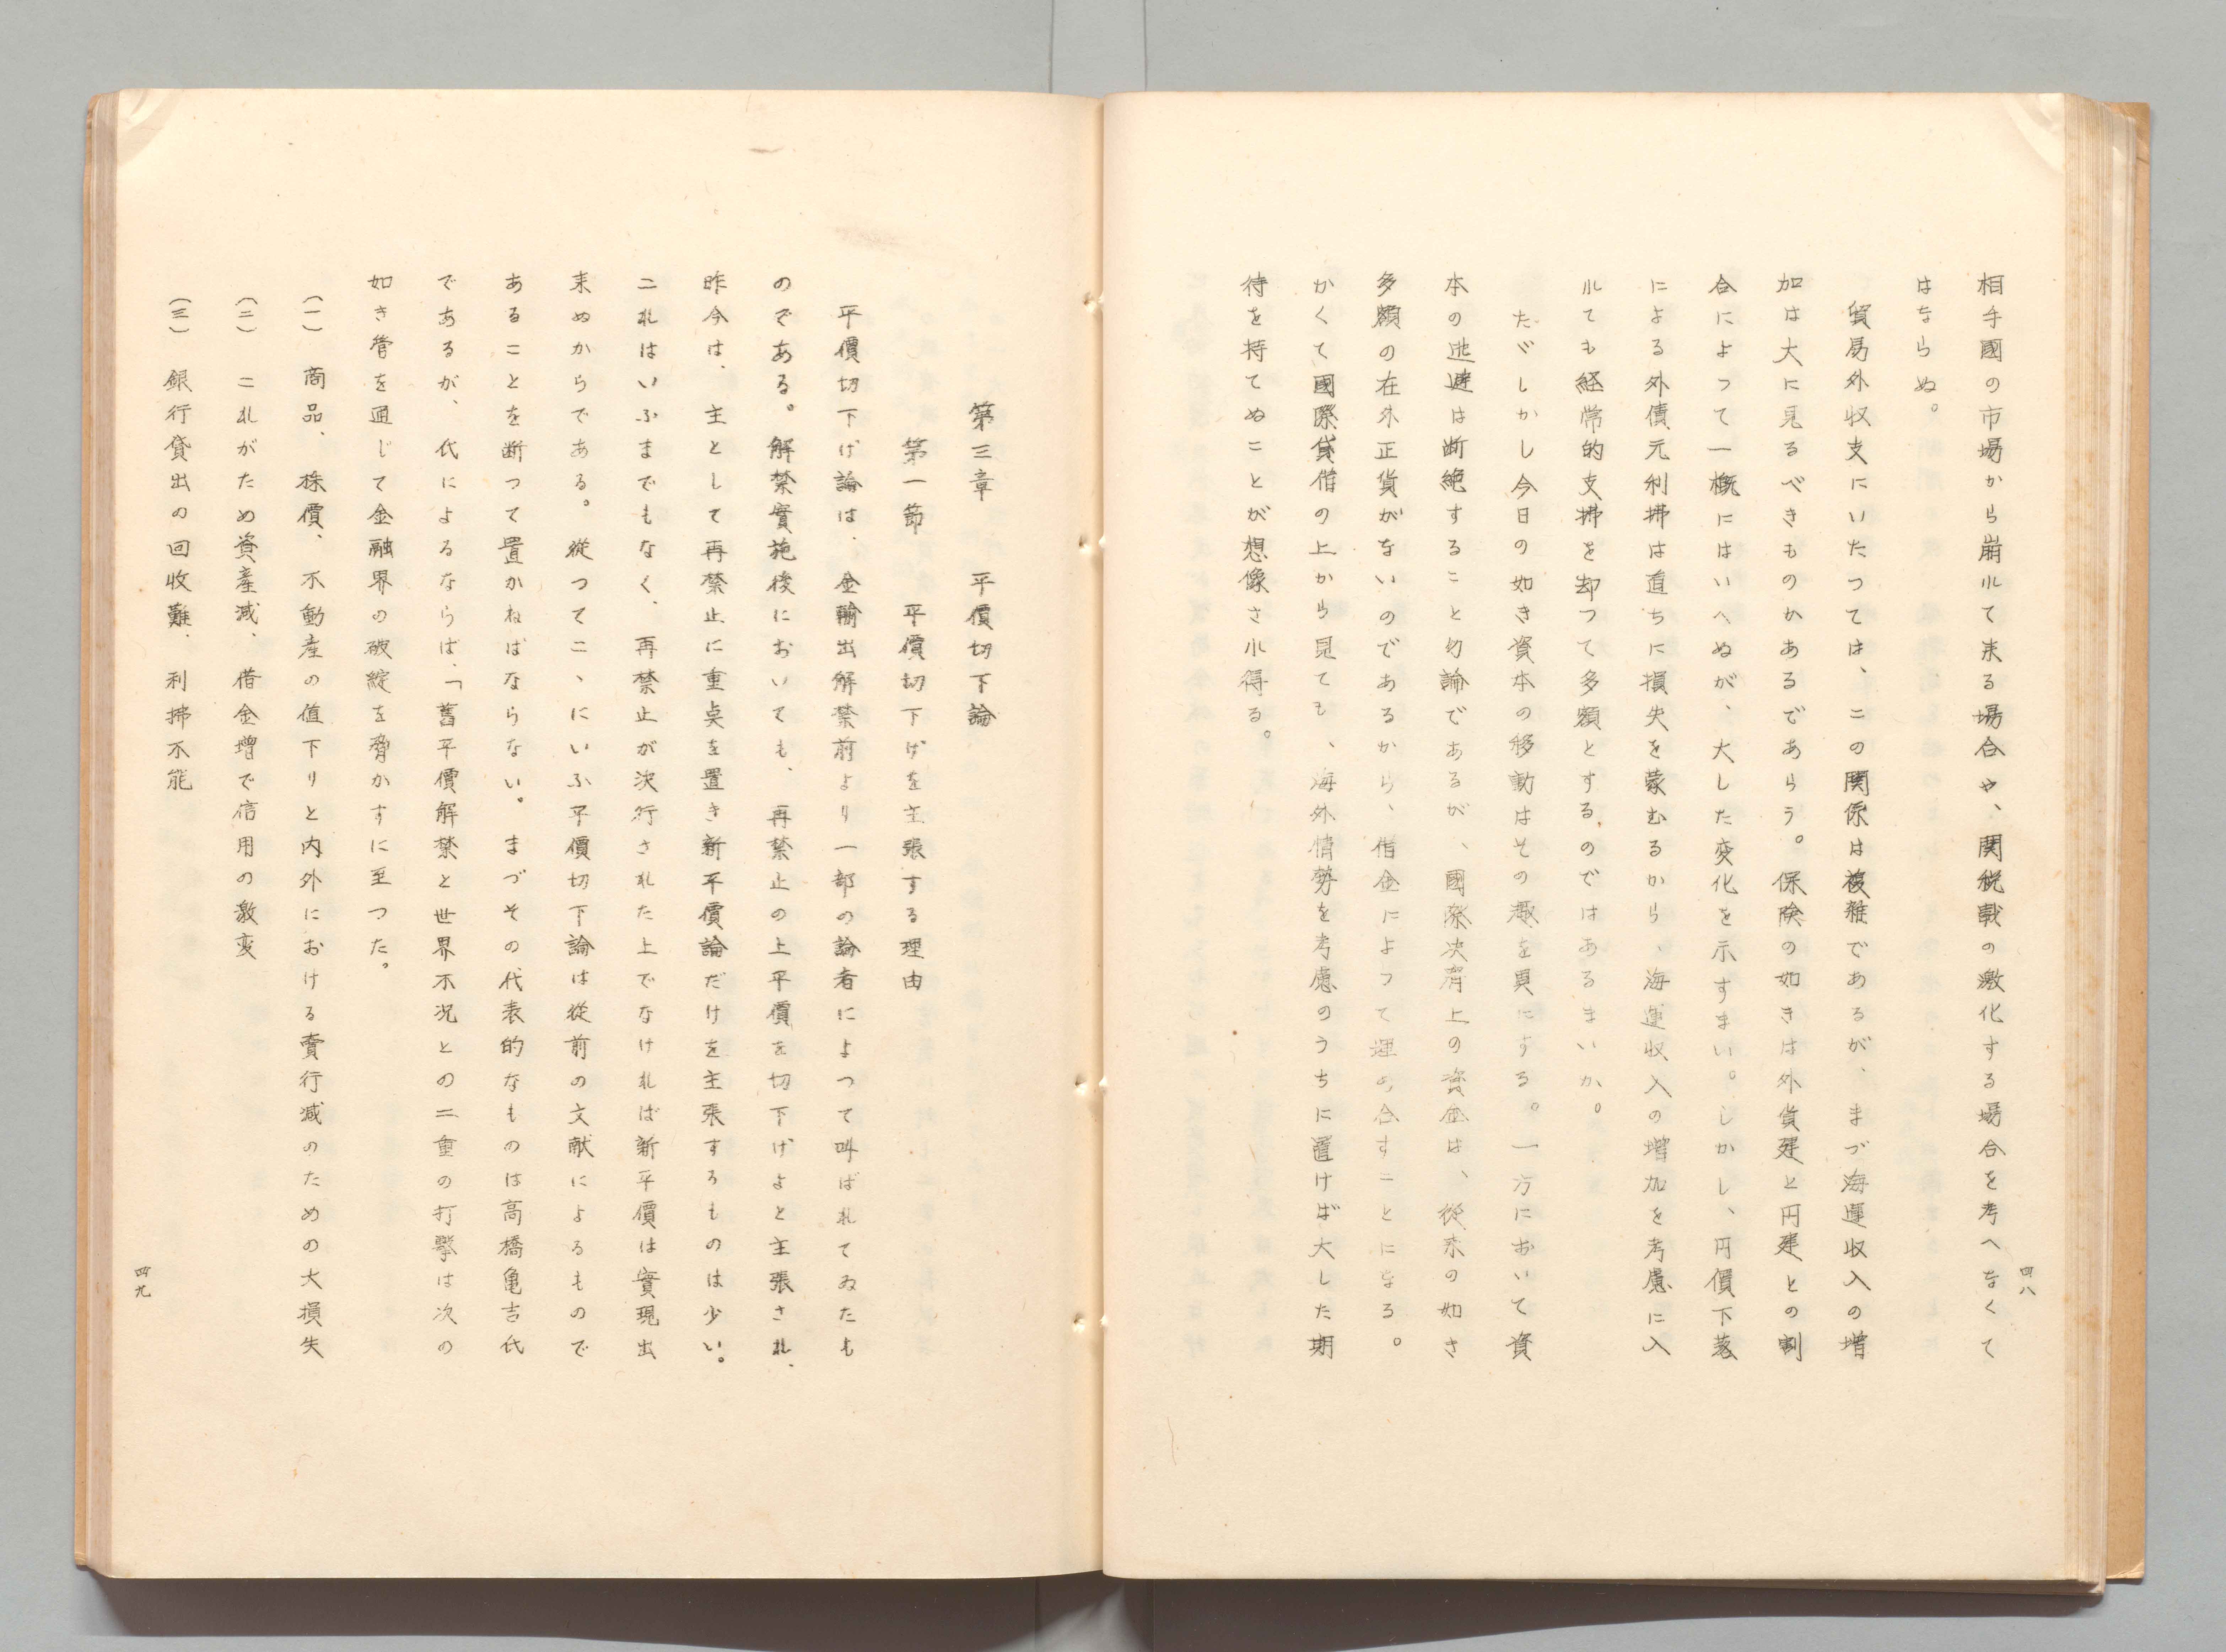 相手國の市場から崩れて来る場合や、関税戰の激化する場合を考へなくて
はならぬ。
貿易外収支にいたつては、この関係は複雑であるが、まづ海運収入の増
加は大に見るべきものがあるであらう。保険の如きは外貨建と円建との割
合によつて一概にはいへぬが、大した変化を示すまい。しかし、円價下落
による外債元利拂は直ちに損失を蒙むるから、海運収入の増加を考慮に入
れても経常的支拂を却つて多額とするのではあるまいか。
たゞしかし今日の如き資本の移動はその趣を異にする。一方において資
本の逃避は断絶すること勿論であるが、國際決済上の資金は、従来の如き
多額の在外正貨がないのであるから、借金によつて埋め合すことになる。
かくて國際貸借の上から見ても、海外情勢を考慮のうちに置けば大した期
待を持てぬことが想像され得る。
四八
第三章　平價切下論
第一節　平價切下げを主張する理由
平價切下げ論は、金輸出解禁前より一部の論者によつて叫ばれてゐたも
のである。解禁實施後においても、再禁止の上平價を切下げよと主張され、
昨今は、主として再禁止に重点を置き新平價論だけを主張するものは少い。
これはいふまでもなく、再禁止が決行された上でなければ新平價は實現出
来ぬからである。從つてこゝにいふ平價切下論は從前の文献によるもので
あることを断つて置かねばならない。まづその代表的なものは高橋亀吉氏
であるが、氏によるならば、「舊平價解禁と世界不況との二重の打撃は次の
如き管を通じて金融界の破綻を脅かすに至つた。
(一)　商品、株價、不動産の値下りと内外における賣行減のための大損失
(二)　これがため資産減、借金増で信用の激変
(三)　銀行貸出の回收難、利拂不能
四九